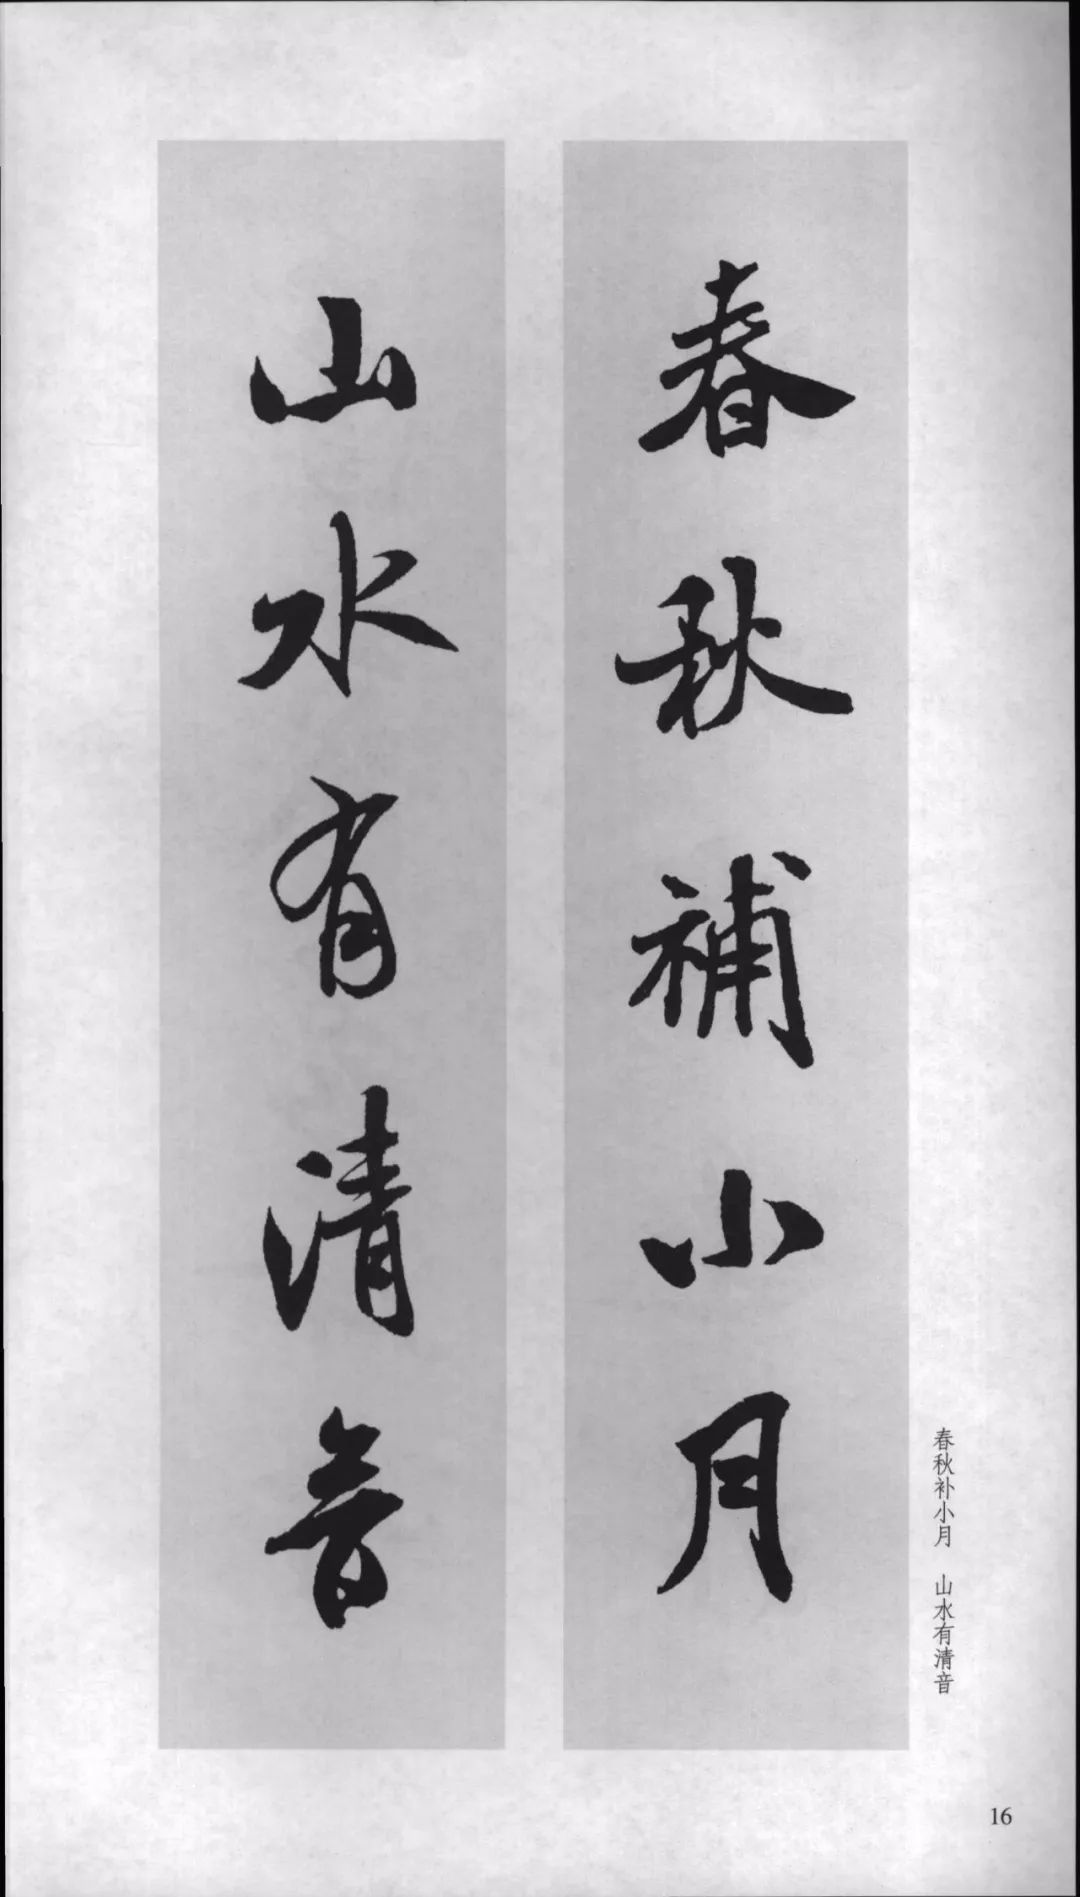 春秋補小月
山水有清音
春秋补小月 山水有清音
16